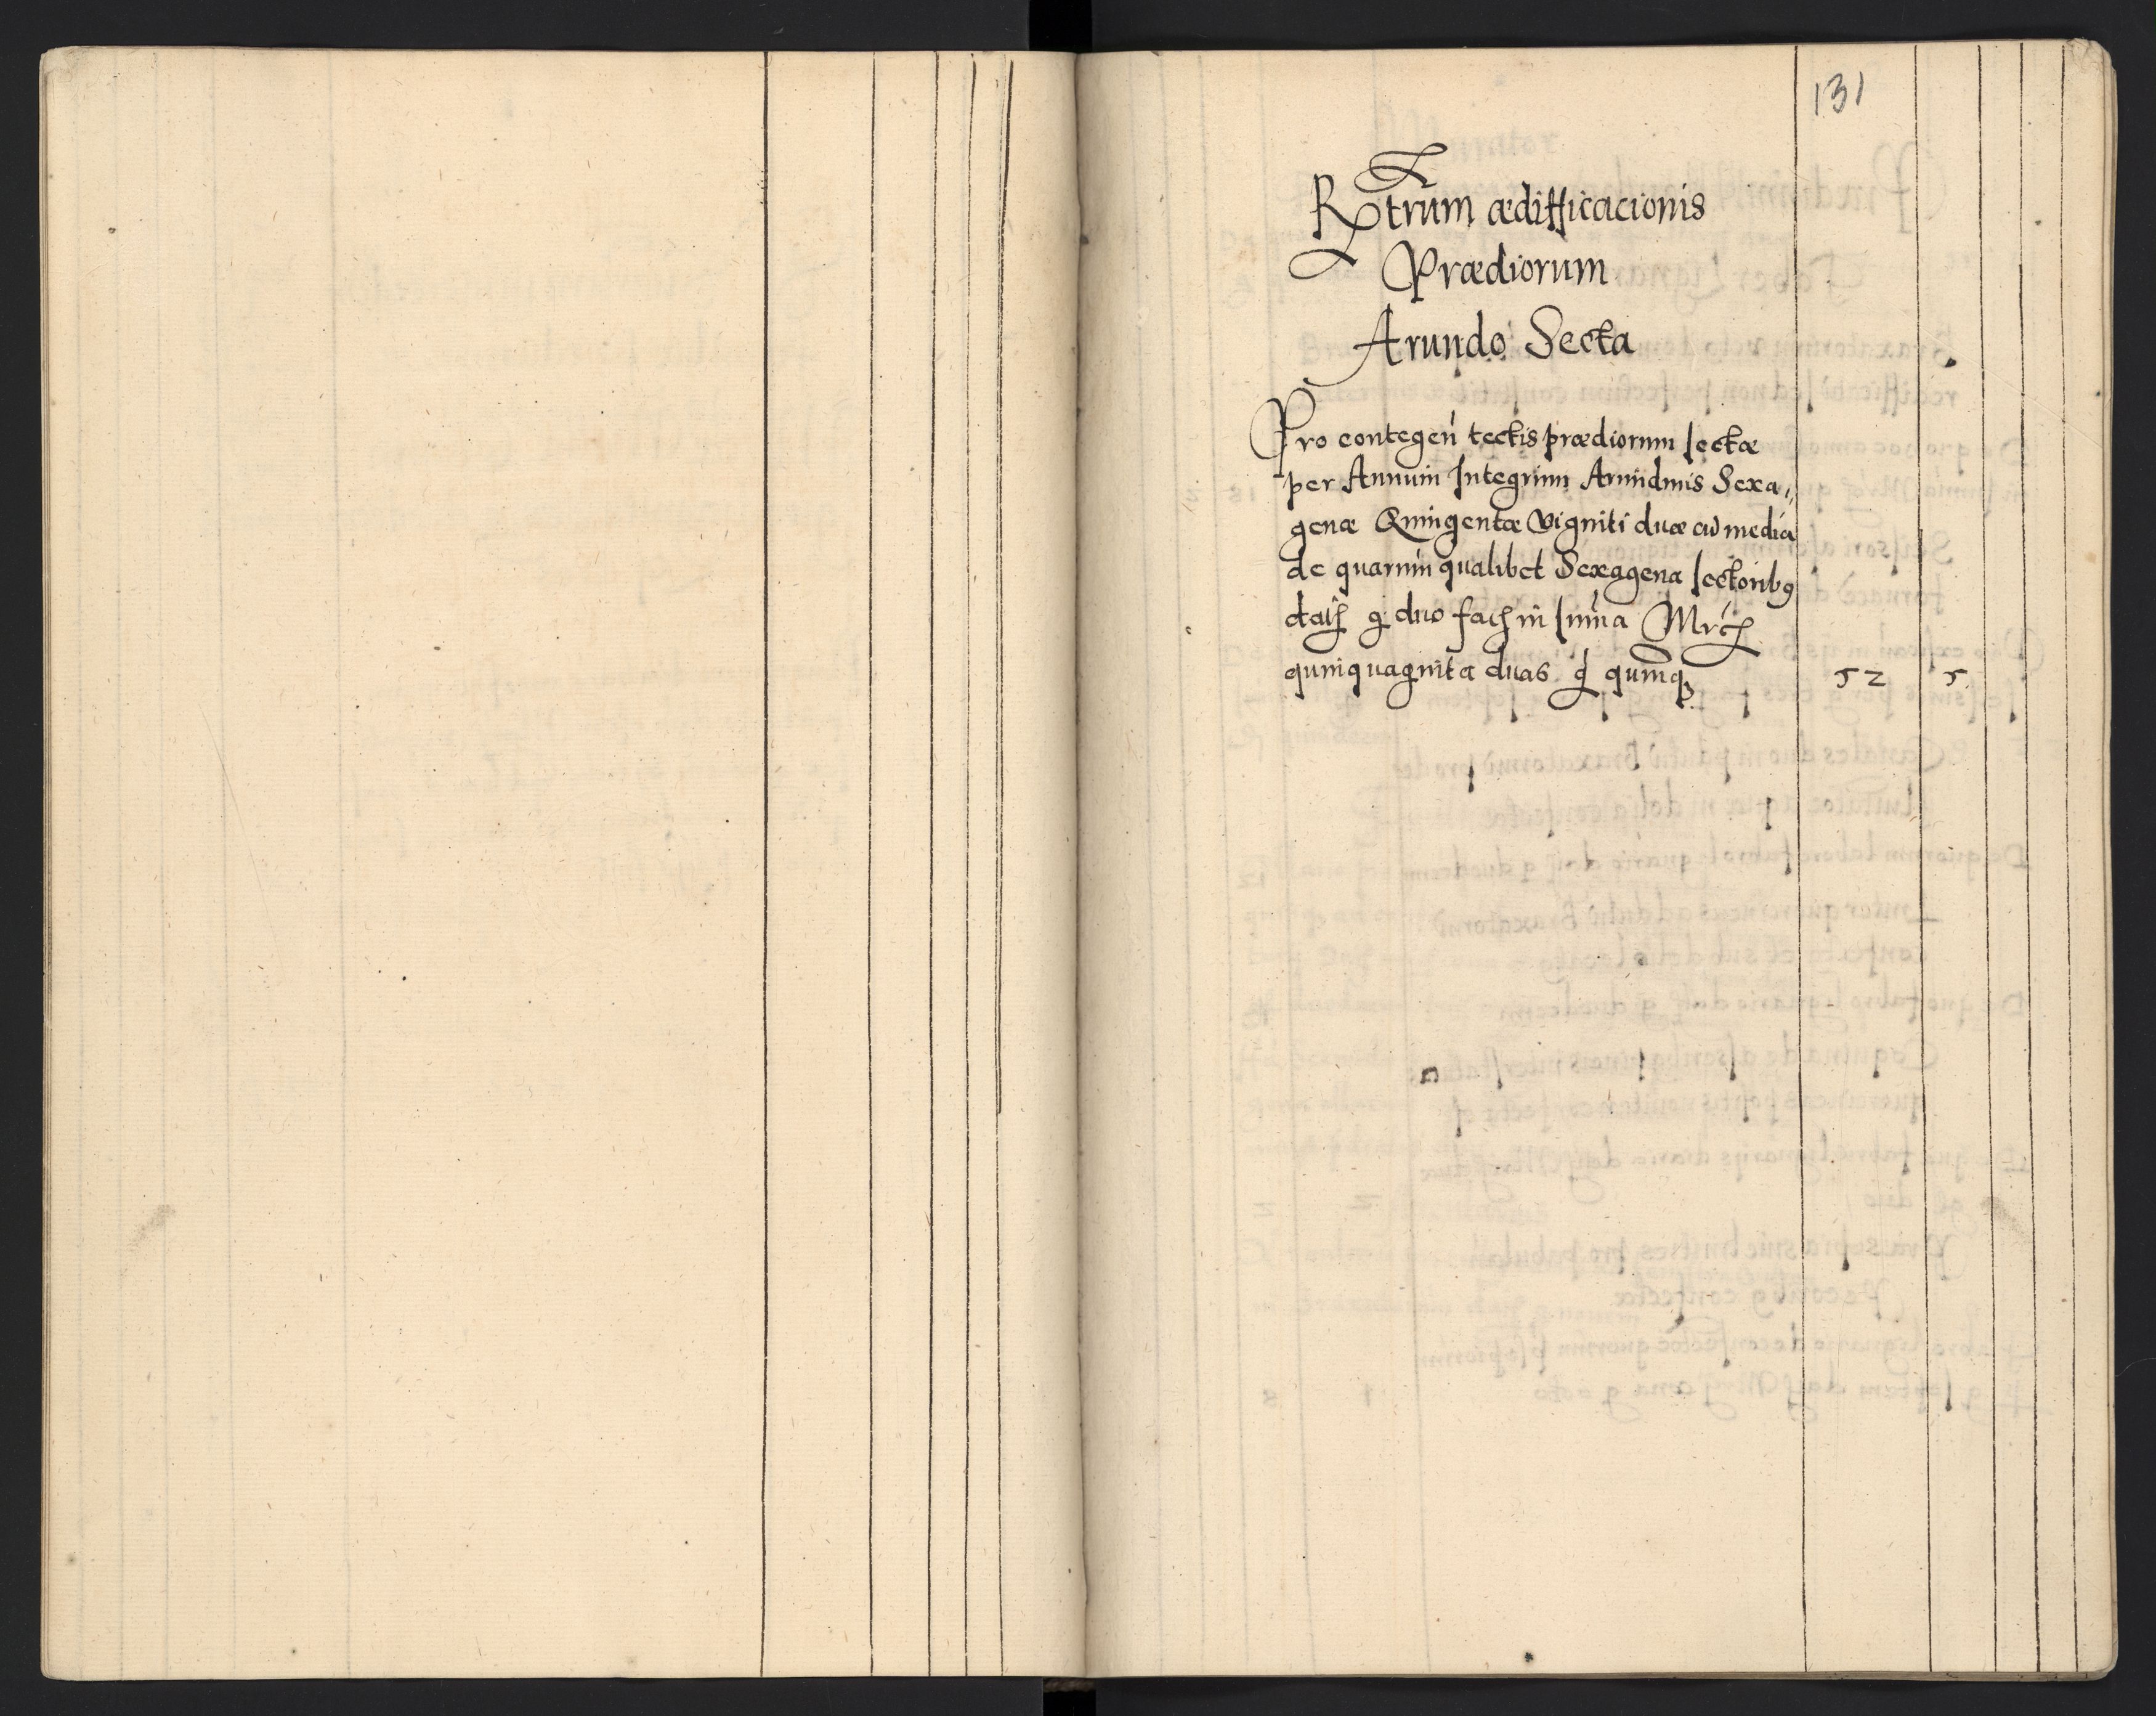 131
Rtrum ædifficacionis
Prædiorum
Arundo Secta
Pro contegen tectis prædiorum sectæ
per Annum Integrum Arundinis Sexa„
genæ Quingentæ Vigniti duæ cu media
de quarum qualibet Sexagena sectoribꝯ
g duo fac in suma Mrc
quinquaginta duas g quinqꝫ 52 5